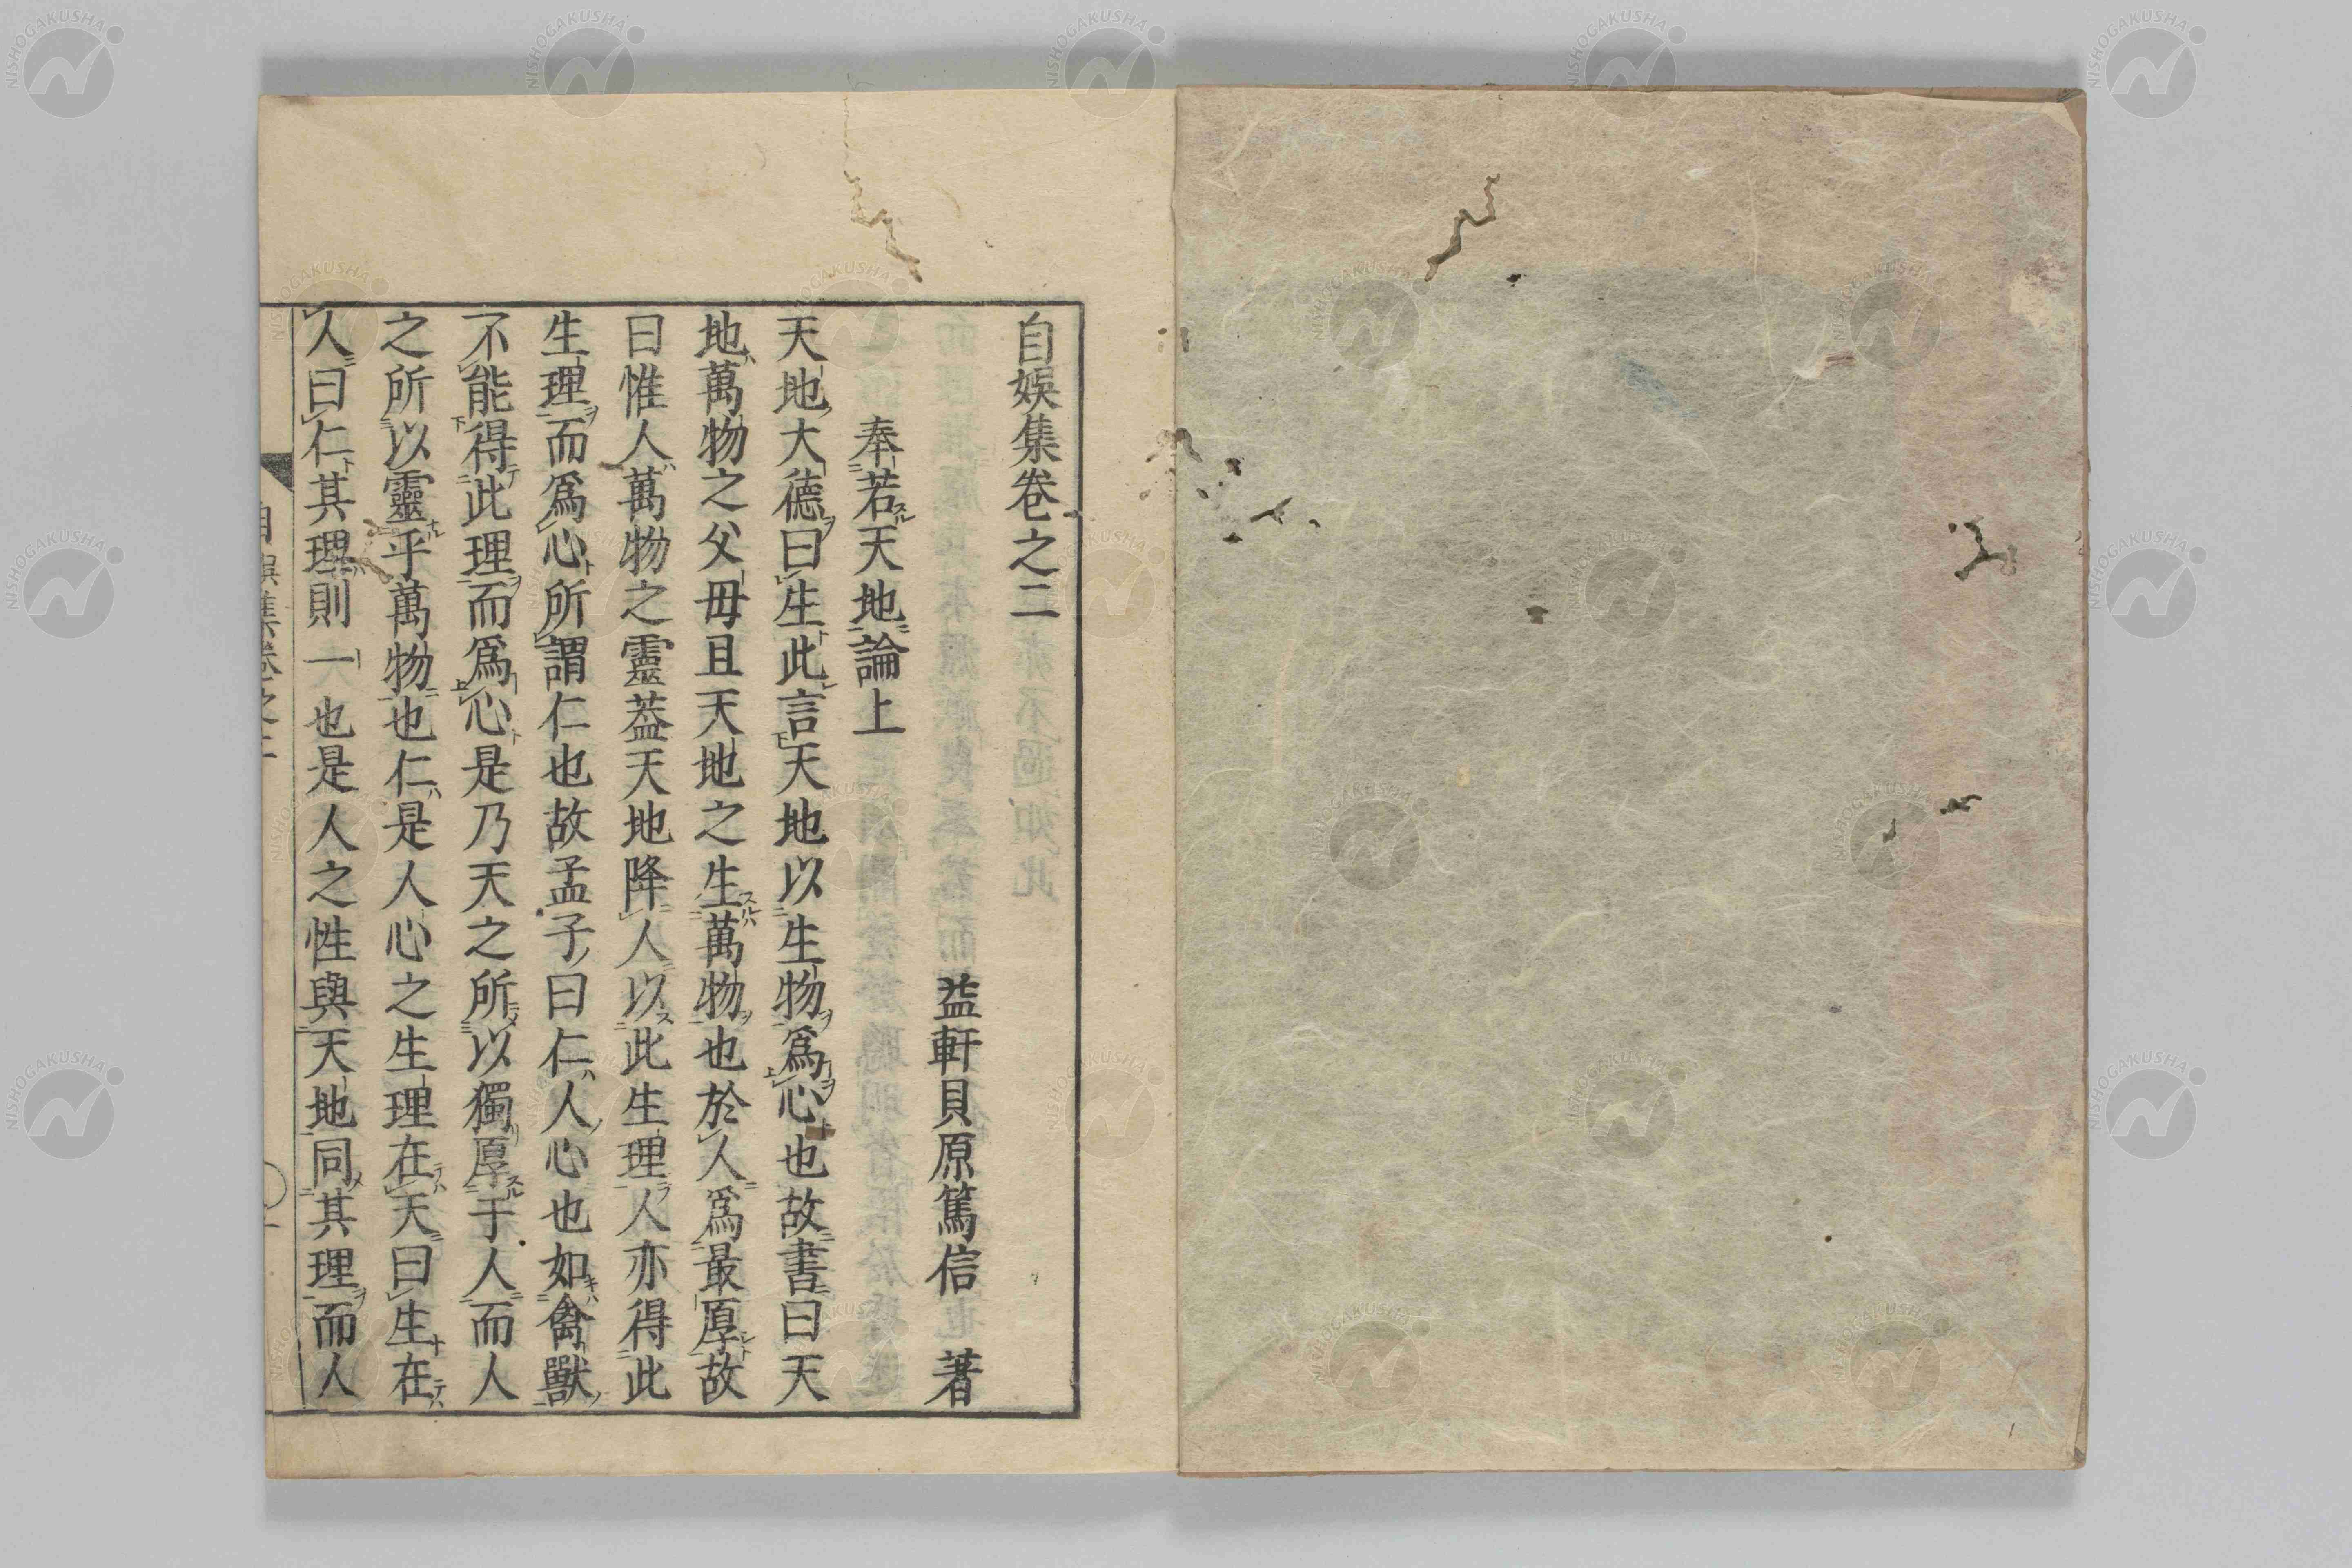 自娯集卷之二
益軒貝原篤信 著
奉若天地論上
天地大德曰生此言天地以生物爲心也故書曰天
地萬物之父母且天地之生萬物也於人爲最厚故
曰惟人萬物之靈葢天地降人以此生理人亦得此
生理而爲心所謂仁也故孟子曰仁人心也如禽獸
不能得此理而爲心是乃天之所以獨厚于人而人
之所以靈乎萬物也仁是人心之生理在天曰生在
人曰仁其理則一也是人之性與天地同其理而人
自娯集卷之二
NISHOGAKUSHA